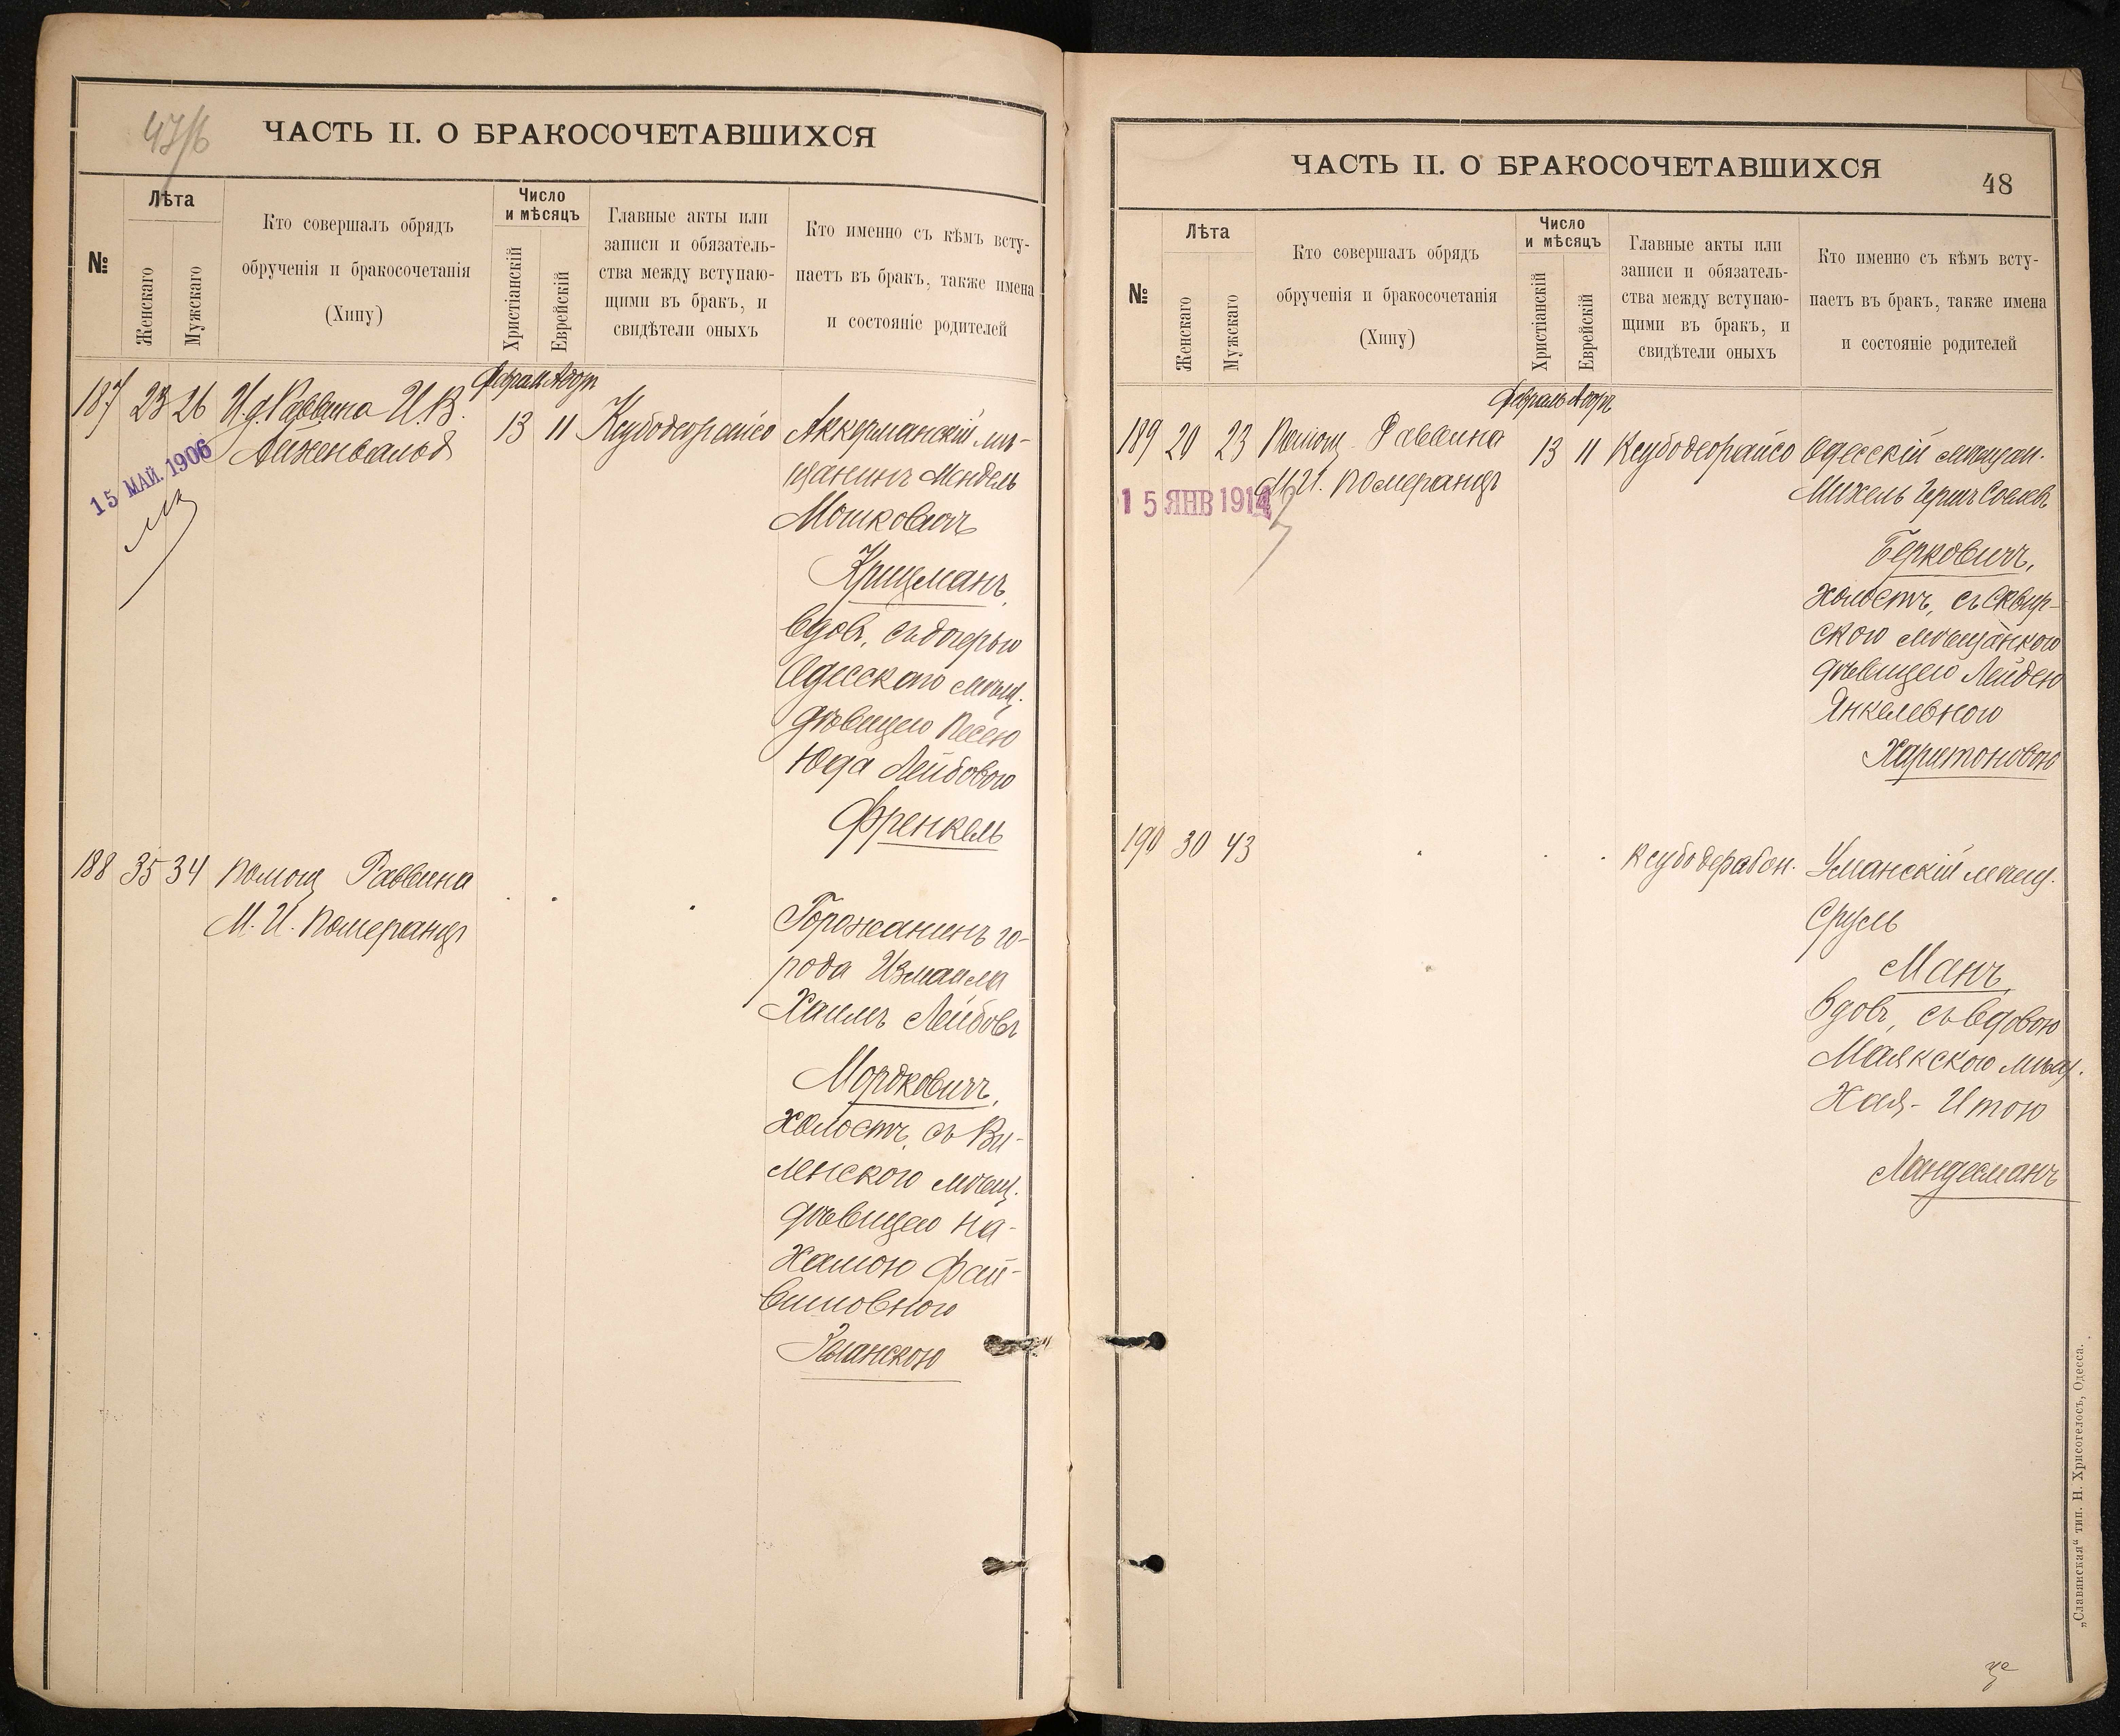 47/б
ЧАСТЬ II. О БРАКОСОЧЕТАВШИХСЯ
№
Лѣта
Женскаго
Мужскаго
Кто совершалъ обрядъ
обрученія и бракосочетанія
(Хипу)
Число
и мѣсяцъ
Христіанскій
Еврейскій
Главные акты или
записи и обязатель-
ства между вступаю-
щими въ бракъ, и
свидѣтели оныхъ
Кто именно съ кѣмъ всту-
паетъ въ бракъ, также имена
и состояніе родителей
187 23 26 И.д. Раввина И.В.
Айженвальд
15 МАЙ. 1906
Феврал Адор
13 11 Ксубодеорайсо
Аккерманскій мѣ-
щанинъ Мендель
Мошковичъ
Крицманъ,
вдовъ, съ дочерью
Одесскаго мѣщ.
дѣвицею Песею
Юда Лейбовою
Френкель
188 35 34 Помощ Раввина
М. И. Померанцъ
Горожанинъ го-
рода Измаила
Хаимъ Лейбовъ
Мордковичъ,
холостъ, съ Ви-
ленскою мѣщ.
дѣвицею На-
хамою Фай-
вишовною
ЧАСТЬ II. О БРАКОСОЧЕТАВШИХСЯ
48
№
Лѣта
Женскаго
Мужскаго
Кто совершалъ обрядъ
обрученія и бракосочетанія
(Хипу)
Число
и мѣсяцъ
Христіанскій
Еврейскій
Главные акты или
записи и обязатель-
ства между вступаю-
щими въ бракъ, и
свидѣтели оныхъ
Кто именно съ кѣмъ всту-
паетъ въ бракъ, также имена
и состояніе родителей
189 20 23 Помощ Раввина
М.И. Померанцъ
15 ЯНВ 1914
Февраль Адоръ
13 11 Ксубодеорайсо
Одесскій мѣщан.
Михель Герш
Берковичъ,
холостъ, съ Сквир-
скою мѣщанкою
дѣвицею Лейдею
Янкелевною
Харитоновою
190 30 43
Ксубодерабон.
Уманскій мѣщ.
Сруль
Манъ,
вдовъ, съ вдовою
Маякскою мѣщ.
Хая-Итою
Ландесманъ
„Славянская“ тип. Н. Хрисогелосъ, Одесса.